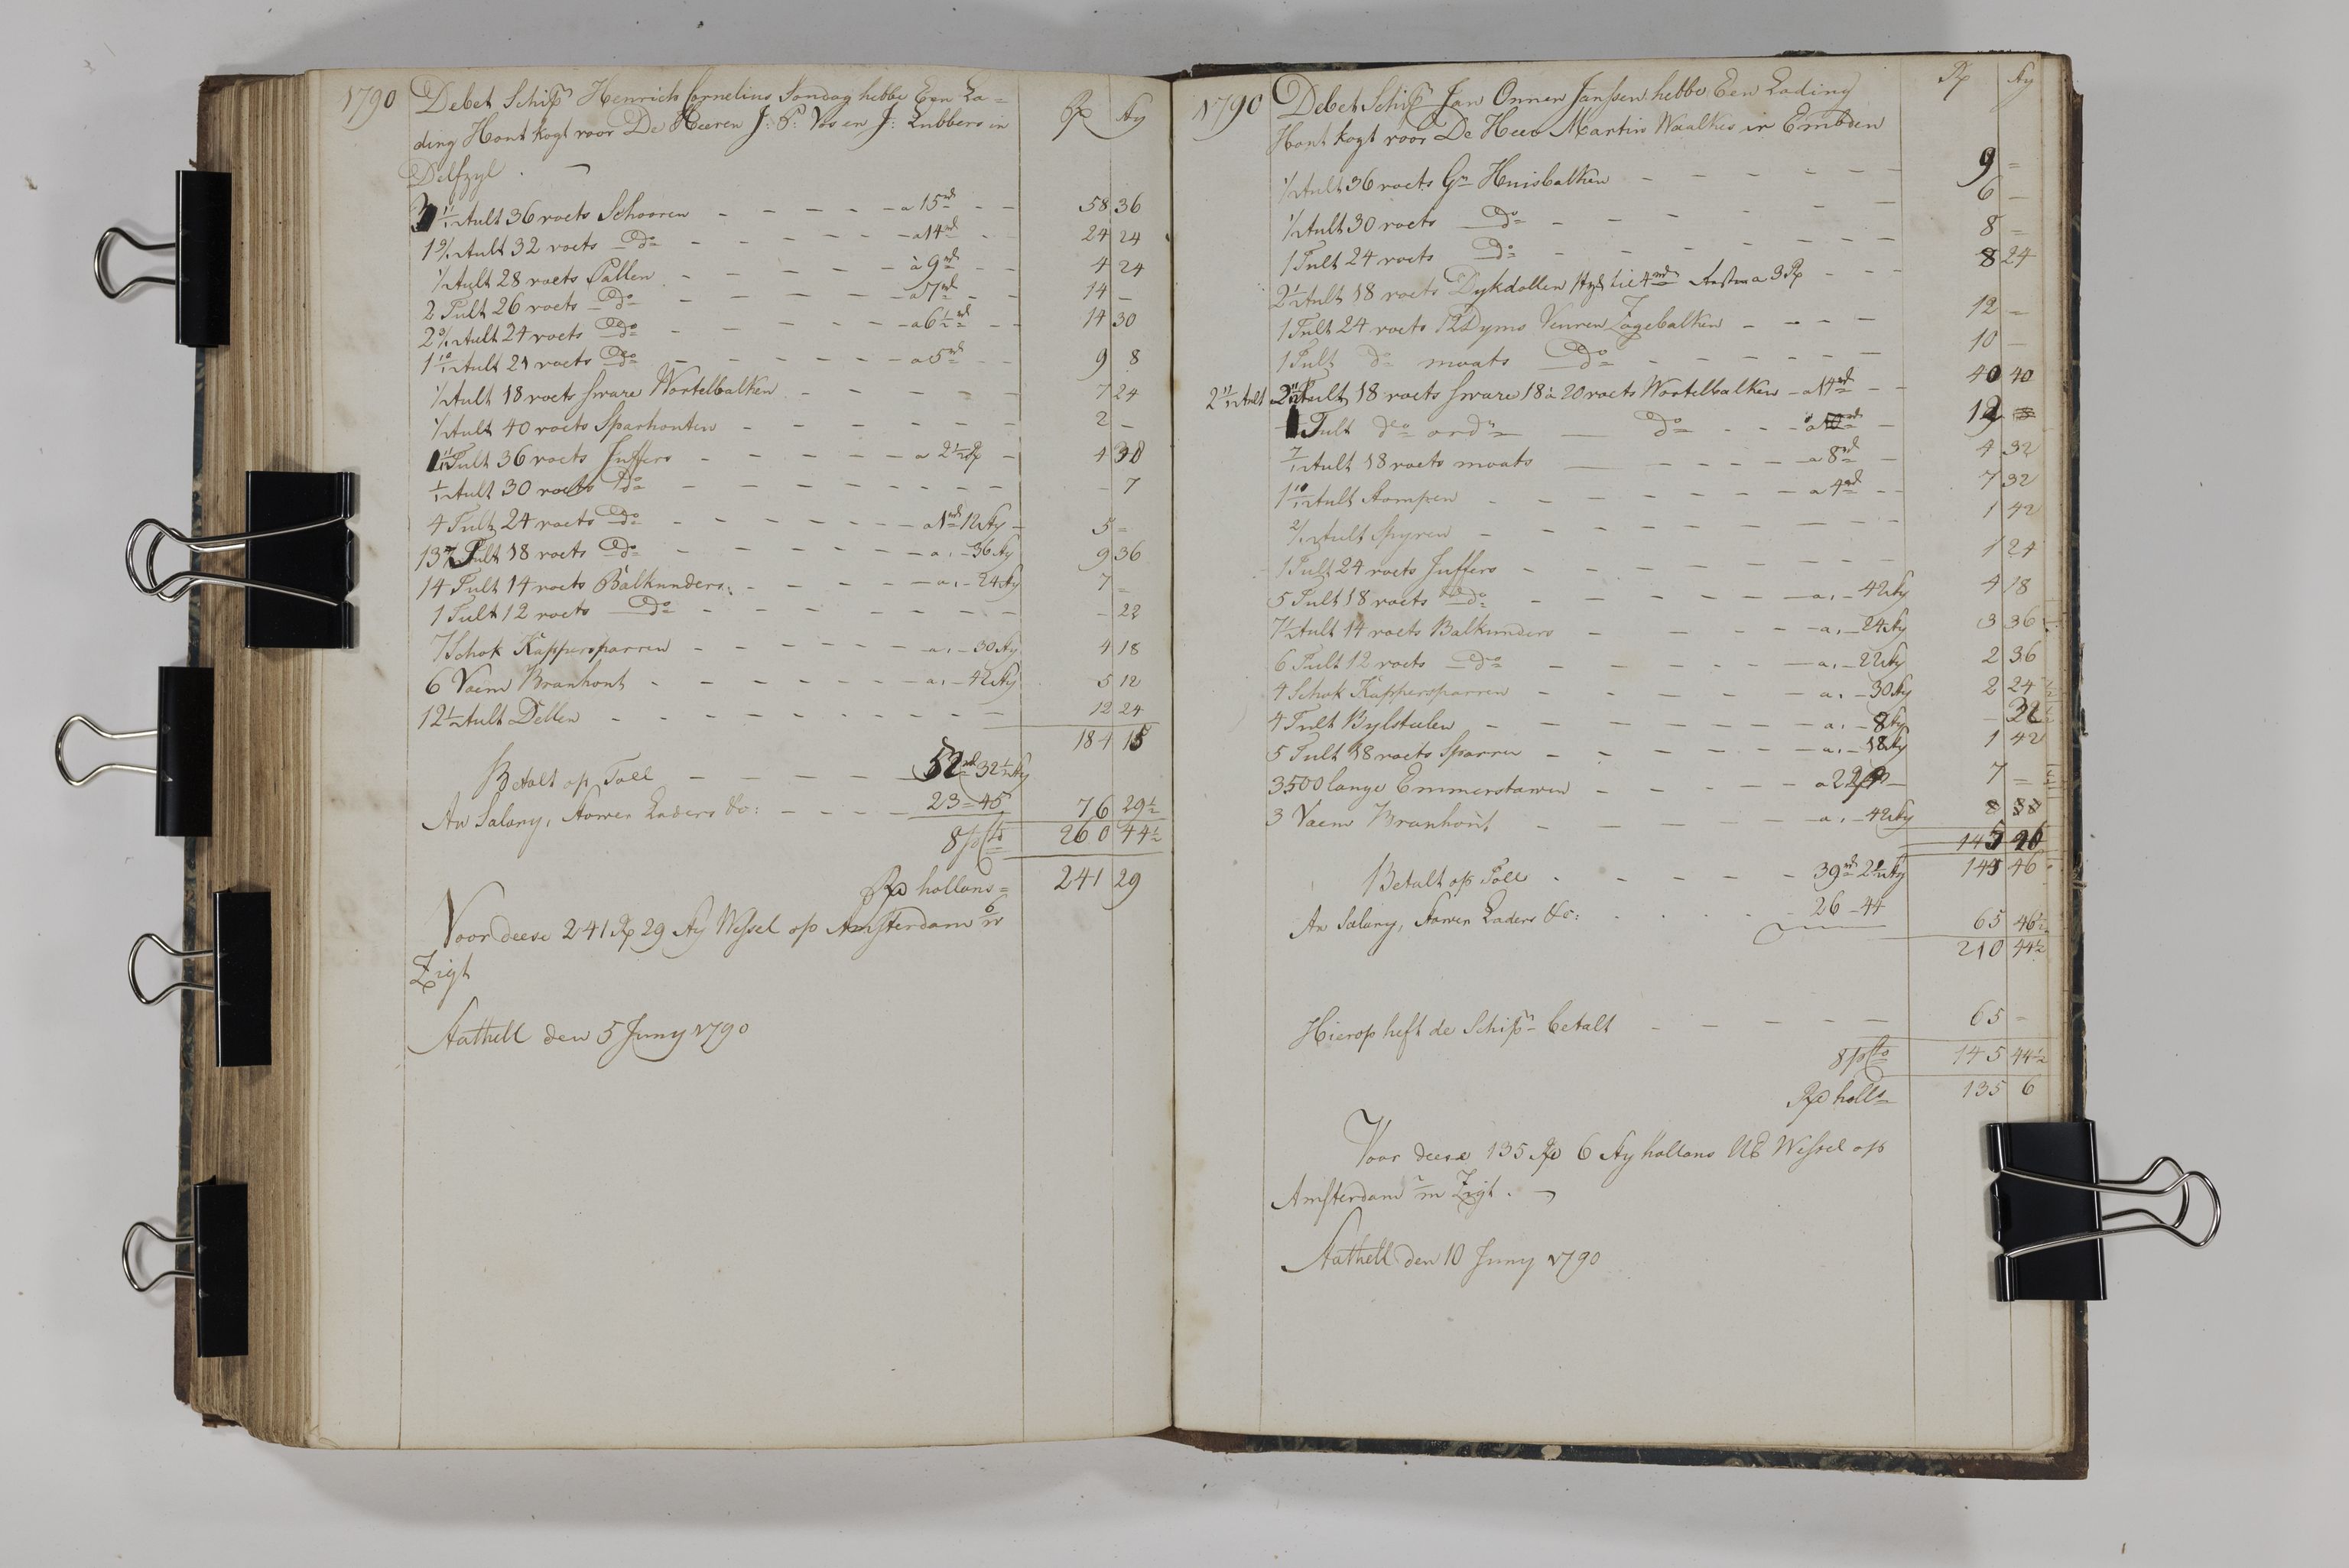 1790 Debet Schipr Henrich Cornelius Sondag hebbe Een La=
ding Hont kogt voor De Heeren J: P: Vos en J: Lubbers in
Delfzyl. Rd Sty
3 11/12 Tult 36 voets Schooren a 15 rd 58 36
1 9/12 Tult 32 voets Do a 14 rd 24 24
1/2 Tult 28 voets Pallen a 9 rd 4 24
2 Tult 26 voets Do a 7 rd 14 –
2 3/12 Tult 24 voets Do a 6 1/2 rd 14 30
1 10/12 Tult 21 voets Do a 5 rd 9 8
1/2 Tult 18 voets sware Wortelbalken 7 24
1/2 Tult 40 voets Sparhonten 2 –
1 11/12 Tult 36 voets Juffers a 2 1/2 Rd 4 38
1/12 Tult 30 voets Do – 7
4 Tult 24 voets Do a 1 rd 12 Sty 5 =
13 Tult 18 voets Do a „ – 36 Sty 9 36
14 Tult 14 voets Balkunders: a „ – 24 Sty 7 =
1 Tult 12 voets Do – 22
7 Schok Kappersparren a „ – 30 Sty 4 18
6 Vaem Branhont a „ – 42 Sty 5 12
12 1/2 Tult Dellen 12 24
184 15
Betalt op Toll 52 rd 32 1/2 Sty
An Salary, Stower Laders &c: 23 = 45 76 29 1/2
8 pCto 260 44 1/2
Rd hollans = 241 29
Voor deese 241 Rd 29 Sty Wessel op Amsterdam 6/m
Zigt
Stathell den 5 Juny 1790
1790 Debet Schipr Jan Onnen Janssen hebbe Een Lading Rd Sty
Hont kogt voor De Heer Martin Waalkes in Embden
1/2 Tult 36 voets Gn Huisbalken 9 =
1/2 Tult 30 voets Do 6 –
1 Tult 24 voets Do 8 =
2 1/2 Tult 18 voets Dykdollen a 3 Rd 8 24
1 Tult 24 voets 12 Dyms Vuuren Zagebalken 12 =
1 Tult do moats Do 10 –
2 11/12 Tult 2 11/12 Tult 18 voets sware 18 à 20 voets Wortelbalken a 14 rd 40 40
1 Tult do ordn Do 12
7/12 Tult 18 voets moats a 8 rd 4 32
1 10/12 Tult Stompen a 4 rd 7 32
2/12 Tult Spyren 1 42
1 Tult 24 voets Juffers 1 24
5 Tult 18 voets Do a „ – 42 Sty 4 18
7 1/2 Tult 14 voets Balkunders a „ – 24 Sty 3 36
6 Tult 12 voets Do a „ – 22 Sty 2 36
4 Schok Kappersparren a „ – 30 Sty 2 24
4 Tult Bylsteelen a „ – 8 Sty – 32
5 Tult 18 voets Sparren a „ – 18 Sty 1 42
3500 lange Emmerstawen a 2 Rd 7 =
3 Vaem Branhont a „ – 42 Sty
145 46
Betalt op Toll 39 rd 2 1/2 Sty 145 46
An Salary, Stower Laders &c: 26 – 44 65 46 1/2
210 44 1/2
Hierop heft de Schipr betalt 65 =
8 pCto 145 44 1/2
Rd holls 135 6
Voor deese 135 Rd 6 Sty hollans UE Wessel op
Amsterdam Zigt.
Stathell den 10 Juny 1790